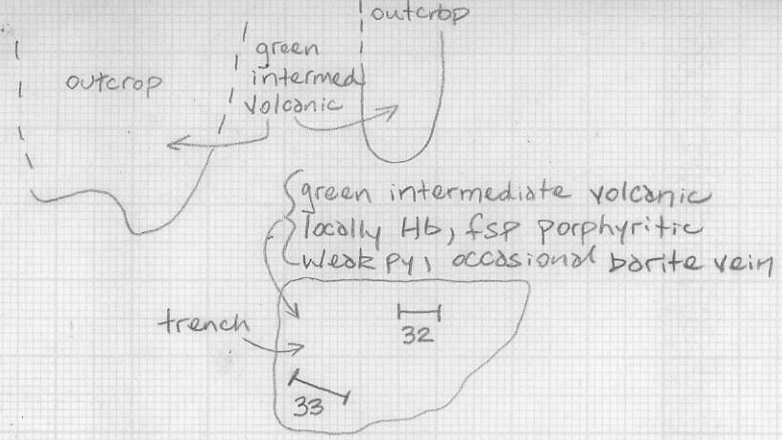 outcrop
outcrop
green
intermed
volcanic
green intermediate volcanic
locally Hb, fsp porphyritic
weak py, occasional barite vein
trench
32
33